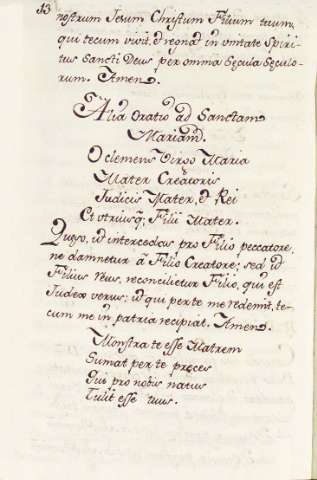 13
nostrum Jesum Christum Filium tuum,
qui tecum vivit, & regnat in unitate Spiri
tus Sancti Deus per omnia Secula Seculo-
rum. Amen.
Alia Oratio ad Sanctam
Mariam.
O clemens Virgo Maria
Mater Creatoris
Judicis Mater, & Rei
Et utriusq; Filii Mater.
Quæso, ut intercedas pro Filio peccatore,
ne damnetur à Filio Creatore; sed ut
Filius reus, reconcilietur Filio, qui est
Judex verus; ut qui per te me redemit, te-
cum me in patria recipiat. Amen.
Monstra te esse Matrem
Sumat per te preces
Qui pro nobis natus
Tulit esse tuus.